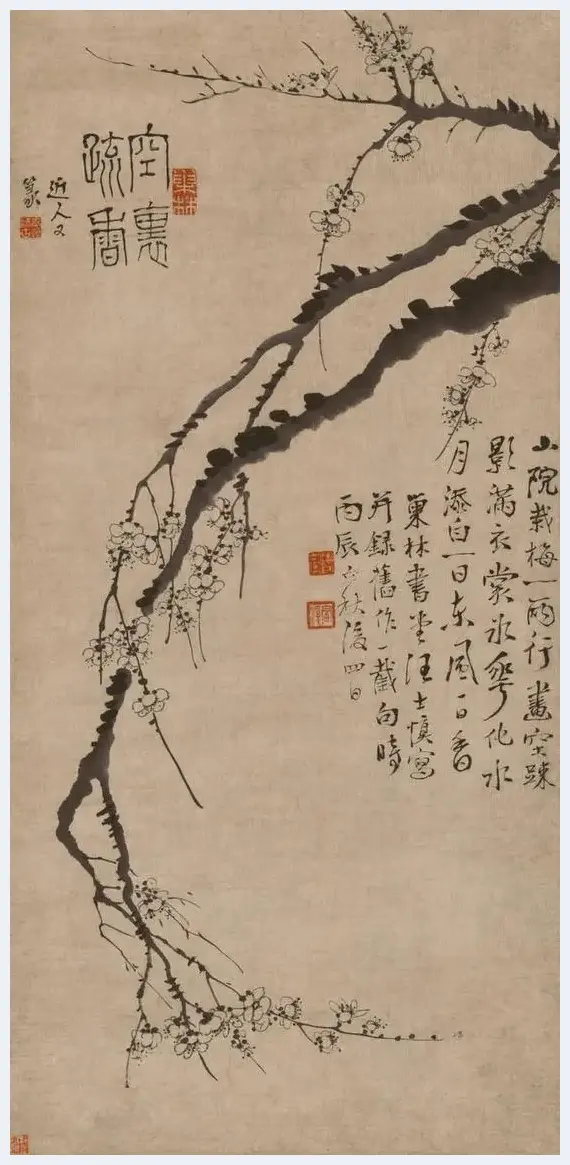 山院栽梅一兩行畫空疎
影滿衣裳冰華化水
月添白一日東風一日香
巢林書堂汪士慎寫
并錄舊作一截句時
丙辰立秋後四日
巢林
空裏
疏香
近人又
篆